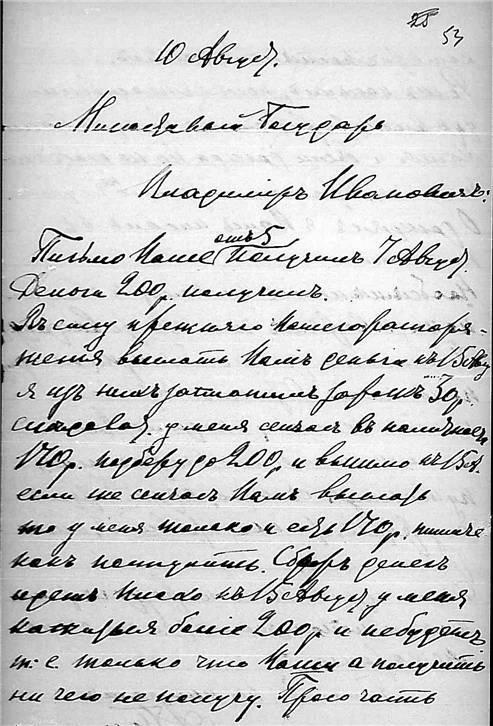 53
10 Август.
Милостивый Государь
Владимиръ Ивановичъ:
отъ 5
Письмо Ваше получилъ 7 Август.
Деньги 200 р. получилъ.
Въ силу прежняго Вашего распоря-
жения выслать Вамъ деньги къ 15 Авгу
я изъ нихъ затратилъ 30 р.
у меня сейчасъ въ наличност
170 р. подберу до 200 р. и вышлю къ 15 А.
если же сейчасъ Вамъ выслать
то у меня только и есть 170 р.
какъ Сборъ денег
идетъ къ 15 Август у меня
более 200 р. и небудетъ
т: е только что Ваши а получить
ни чего не получу. часть